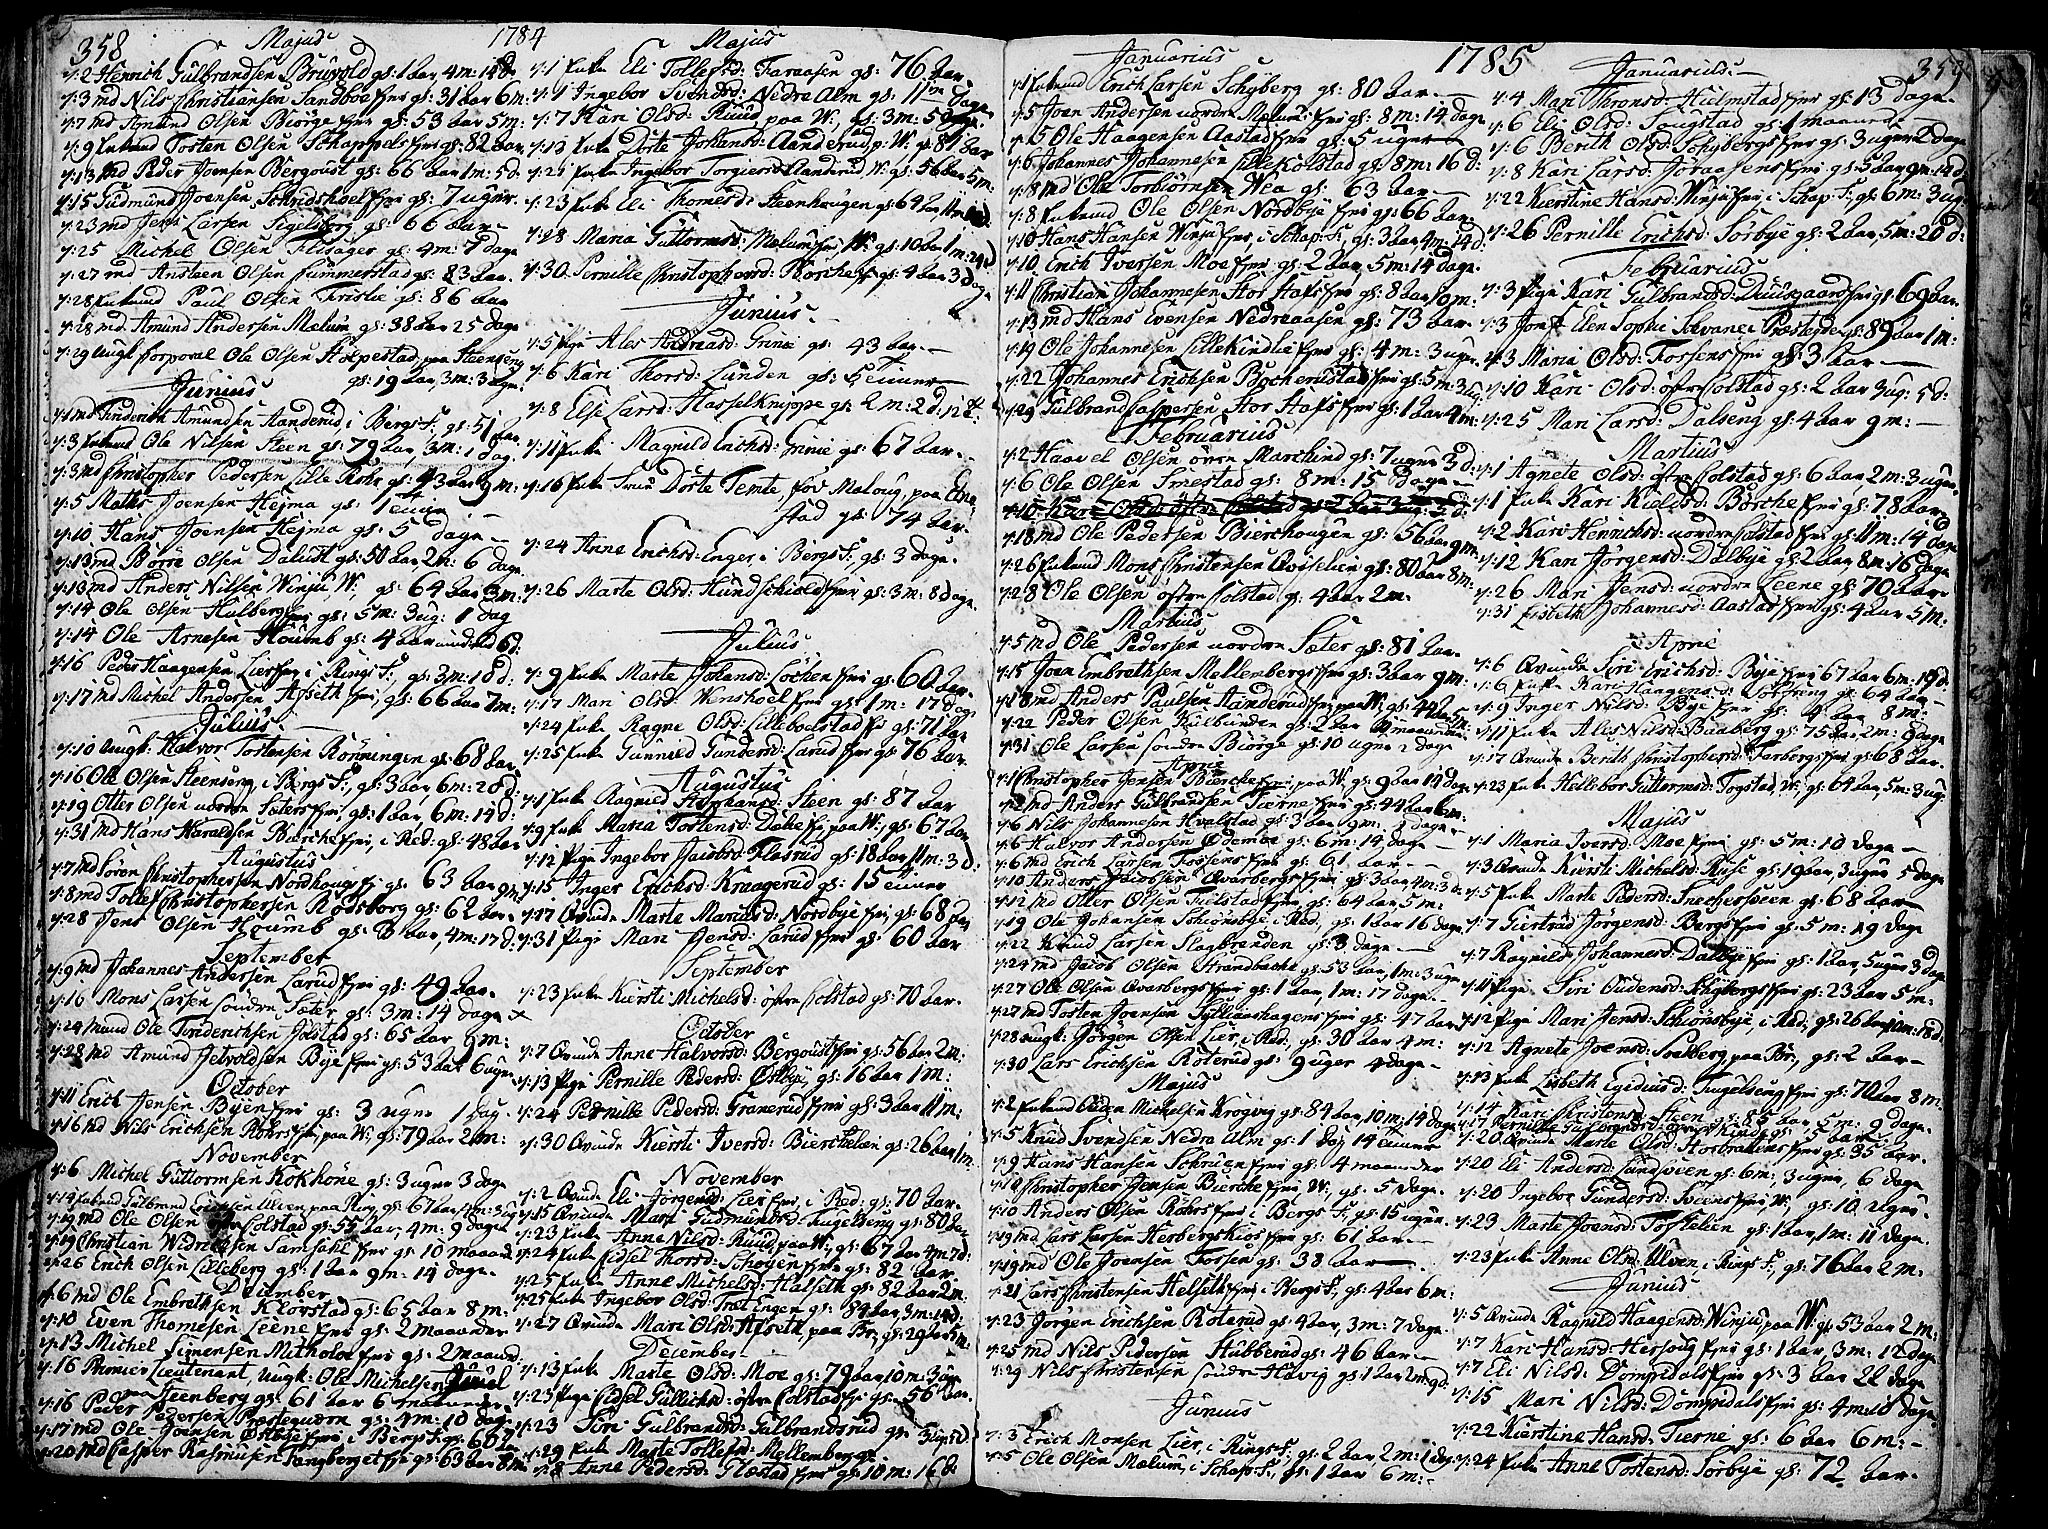 358
1784
Majus
7:2 Henrich Gulbrandsen Bruvold gs: 1 aar 4 m: 14 d:
7:3 md Nils Christiansen Sandboe fri gs: 31 aar 6 m:
7:7 md Amund Olsen Biørge fri gs: 53 aar 5 m:
7:9 Enkmd Tosten Olsen Schappels fri gs: 82 aar
7:13 md Peder Joensen Bergoust gs: 66 aar 1 m: 5 d.
7:15 Gudmund Joensen fri gs: 7 uger
7:23 md Jens Larsen gs: 66 aar
7:25 Michel Olsen gs: 4 m: 7 dage
7:27 md Anstaen Olsen Fummerstad gs: 83 aar.
7:28 Enkmd Paul Olsen gs: 86 aar
7:28 md Amund Andersen Mælum gs: 38 aar 25 dage
7:29 ungk: Corporal Ole Olsen paa Steenseng
gs: 19 aar 3 m: 3 uger
Junius
Amundsen Aanderud i Bergs S: gs: 51 aar
7:3 Enkmd Ole Nilsen Steen gs: 79 aar, 3 m: 1 dag.
7:3 md Christopher Pedersen Lille Rohr gs: 43 aar 9 m:
7:5 Joensen Hejma gs: 1 time
7:10 Hans Joensen Hejma gs: 5 dage
7:13 md Børre Olsen Dalust gs: 50 aar 2 m: 6 dage
7:13 md Anders Nilsen Winju W: 64 aar 3 m:
7:14 Ole Olsen Hulberg fri gs: 5 m: 3 ug: 1 dag
7:14 Ole Arnesen gs: 4 aar 6 d:
7:16 Peder Haagensen Lier fri i Rings S: gs: 3 m: 10 d:
7:17 md Michel Andersen Alseth fri gs: 66 aar 7 m:
Julius
7:10 ungk: Halvor Tostensen Rønningen gs: 68 aar
7:16 Ole Olsen Steenseng, i Bergs S:, gs: 3 aar 6 m: 28 d:
7:19 Otter Olsen nordre Sæters fri gs: 1 aar, 6 m: 14 d:
7:31 md Hans Haraldsen Børche fri, i Red: gs: 48 aar
Augustus
7:7 md Søren Christophersen Nordhoug fri gs: 63 aar 9 m:
7:8 md Tolle Christophersen Rødsborg gs: 62 aar.
7:28 Jens Olsen Krumb gs: 3 aar, 4 m: 17 d:
September
7:9 md Johannes Andersen Larud fri gs: 49 aar.
7:16 Mons Larsen Søndre Sæter gs: 3 m: 14 dage
7:24 Ole Tinderichsen Jølstad gs: 65 aar
7:28 md Amund Jetvoldsen Bye fri gs: 53 aar 6 uger
October
7:11 Erich Jensen Byen fri gs: 3 uger 1 dag.
7:16 md Nils Erichsen Rohrs fri, paa W: gs: 79 aar 2 m:
November
7:6 Michel Guttormsen Kokhone gs: 3 uger 3 dage
7:14 Enkmd Gulbrand Erichsen Ulven paa Ring gs: 67 aar
7:19 md Ole Olsen Colstad gs: 55 aar, 4 m: 9 dage
7:19 Christian Samsahl fri gs: 10 maaned
7:26 Erich Olsen Lilleberg gs: 1 aar 9 m: 14 dage.
December
7:6 md Ole Embrethsen Kløvstad gs: 65 aar 8 m:
7:10 Even Thomesen Leene fri gs: 2 maaneder
7:13 Michel Simensen fri gs: 2 maaned.
7:16 Premier Lieutenant, ungk: Ole Michelsen Juul
paa Steenberg gs: 61 aar 6 maaneder.
7:16 Peder Pedersen gs: 4 m: 10 dage
7:17 md Ole Joensen Østbye fri i Bergs S: gs: 60 aar
7:20 md Casper Rasmusen Tangberget fri gs: 63 aar 8 m:
Majus
7:1 Enke Eli Tollefsd: Faraasen gs: 76 aar.
7:1 Ingebor Svendsd: Nedre Alm gs: 11 dage
7:7 Kari Olsd: Ruud paa W:, gs: 3 m: 5 dage.
7:13 Enke Dorte Johansd: Aanderud p: W: gs: 81 aar
7:21 Enke Ingebor Torgiersd: Aanderud W: gs: 56 aar 5 m:
7:23 Enke Eli Thomesd: Steenhougen gs: 64 aar
7:28 Maria Guttormsd: Mælums fri W: gs: 10 aar 1 m: 24 d
7:30 Pernille Christophersd: Børche fri gs: 4 aar 3 dage
Junius
7:5 Pige Ales Andreasd: Grine gs: 43 aar.
7:6 Kari Thorsd: Lunden gs: 5 timer
7:8 Else Larsd: Hasselknippe gs: 2 m: 2 d: 12 t:
7:11 Enke Magnild Erichsd: Grine gs: 67 aar.
7:16 Enke Frue Dorte Temte, fød Meloug, paa
stad gs: 74 aar.
7:24 Anne Erichsd: Enger, i Bergs S: gs: 3 dage.
7:26 Marte Olsd: Hundschiold fri gs: 3 m: 8 dage.
Julius
7:9 Enke Marte Johansd: Løchen fri gs: 60 aar.
7:17 Mari Olsd: Wenskoel fri gs: 1 m: 17 dage
7:24 Enke Ragne Olsd: Lillebolstad fri gs: 71 aar
7:25 Enke Gunnild Gundersd: Larud fri gs 76 aar.
Augustus
7:1 Enke Ragnild Stephansd: Steen gs: 87 aar
7:9 Enke Maria Tostensd: paa W:, gs: 67 aar
7:12 Pige Ingebor Jacobsd: Flesrud gs: 18 aar 11 m: 3 d.
7:15 Inger Erichsd: Kraagerud gs: 15 timer
7:17 Qvinde Marte Mariusd: Nordbye fri, gs: 68 aar
7:31 Pige Mari Jensd: Larud fri gs: 60 aar
September
7:23 Enke Kiersti Michelsd: øfre Colstad gs: 70 aar.
October
7:7 Qvinde Anne Halvorsd: Bergoust fri gs: 56 aar 2 m:
7:13 Pige Pernille Pedersd: Østbye gs: 16 aar 1 m:
7:24 Pernille Pedersd: Granerud fri gs: 3 aar 11 m:
7:30 Qvinde Kiersti Iversd: Bierchelien gs: 26 aar 1 m.
November
7:2 Qvinde Eli Jørgensd: Lier fri, i Red: gs: 70 aar.
7:15 Qvinde Mari Gudmundsd: Fugelseng gs: 80 aar
7:23 Enke Anne Nilsd: Ruud paa W:, gs: 67 aar 4 m 7 d:
7:24 Enke Edsel Thorsd: Schøyen fri gs: 82 aar
7:25 Enke Anne Michelsd: Halseth gs: 82 aar 2 m:
7:25 Enke Ingebor Olsd: Træt Engen gs: 84 aar, 3 m: 14 d:
7:27 Qvinde Mari Olsd: Alseth, paa Br:, gs: 29 aar
December
7:13 Enke Marte Olsd: Moe gs: 79 aar 10 m: 3 uger
7:23 Pige Edsel Gullichsd: øfre Colstad fri gs: 56 aar.
7:23 Siri Gulbrandsd: Gulbrandsrud gs: 3 ug: 5 d
7:29 Enke Marte Tollefsd: Mellemberg gs
7:8 Anne Pedersd: Glæstad fri gs: 10 m: 16 d:
1785
359
Januarius
7:1 Enkmd Erich Larsen Schyberg gs: 80 aar.
7:5 Joen Andersen nordre Mælum fri gs: 8 m: 14 dage
7:5 Ole Haagensen Aastad fri gs: 5 uger
7:6 Johannes Johannesen Lille Kolstad gs: 8 m: 16 d:
7:8 md Ole Torbiørnsen Wea gs: 63 aar
7:8 Enkmd Ole Olsen Nordbye fri gs: 66 aar.
7:10 Hans Hansen Winju fri, i Schap: S:, gs: 3 aar 4 m: 14 d.
7:10 Erich Iversen Moe fri gs: 2 aar, 5 m: 14 dage.
7:11 Christian Johannesen Stor Hofs fri gs: 8 aar, 10 m:
7:13 md Hans Evensen Nedreaasen gs: 73 aar.
7:19 Ole Johannesen Lillekindlie fri gs: 4 m: 3 uger.
7:22 Johannes Erichsen Bocherudstad fri gs: 5 m: 3 ug.
7:29 Gulbrand Caspersen Stor Hofs fri gs: 1 aar 4 m:
Februarius
7:2 Haavel Olsen øvre Marchind gs: 7 uger 3 d:
7:6 Ole Olsen Smestad gs: 8 m: 15 dage
7:18 md Ole Pedersen Bierchougen gs: 56 aar 9 m.
7:26 Enkmd Mons Christensen Qvislien gs: 80 aar 8 m:
7:28 Ole Olsen øfre Colstad gs: 4 aar 2 m.
Martius
7:5 md Ole Pedersen nordre Sæter gs: 81 aar.
7:15 Joen Embrethsen Mellembergs fri gs: 3 aar 9 m:
7:18 md Anders Paulsen Aanderud fri, paa W: gs: 44 aar 5 m:
7:22 Peder Olsen Kulbunden gs: 2 aar
7:31 Ole Larsen søndre Biørge gs: 10 uger 2 dage
Aprie
7:1 Christopher Jensen Bierche fri, paa W: gs: 9 aar 14 dage
7:2 md Anders Gulbrandsen Tierne fri gs: 44 aar 6 m:
7:6 Nils Johannesen Hvalstad gs: 3 aar 9 m: dage
7:6 Halvor Andersen Ødemoe gs: 6 m: 14 dage
7:6 md Erich Larsen Fossens fri gs: 61 aar
7:10 Anders Jacobsen Qvarbergs fri gs: 3 aar, 4 m: 3 d.
7:12 md Otter Olsen fri gs: 64 aar 5 m:
7:19 Ole Johansen Schiønsbye i Red:, gs: 1 aar 16 dage
7:22 Knud Larsen Slagbrenden gs: 3 dage
7:24 md Jacob Olsen Strandbache gs: 53 aar, 1 m: 3 uger
7:27 Ole Olsen Qvarbergs fri gs: 1 aar, 1 m: 17 dage.
7:27 md Tosten Joensen fri gs: 47 aar
7:28 ungk: Jørgen Olsen Lier, i Red:, gs: 30 aar 4 m:
7:30 Lars Erichsen Roterud gs: 9 uger 4 dage
Majus
7:2 Enkmd Ouden Michelsen Krogvig gs: 84 aar, 10 m: 14 dage
7:5 Knud Svendsen Nedre Alm gs: 1 dag 14 timer
7:9 Hans Hansen Schruen fri gs: 4 maaneder
7:10 Christopher Jensen Bierche fri W:, gs: 5 dage.
7:10 Anders Olsen Røhrs fri i Bergs S:, gs: 15 uger.
7:19 md Lars Larsen Herbergskios fri gs: 61 aar
7:19 md Ole Joensen Forsen gs: 38 aar
7:21 Lars Christensen Helseth fri, i Bergs S:, gs: 4 aar 6 m:
7:23 Jørgen Erichsen Roterud gs: 4 aar, 3 m: 7 dage.
7:25 md Nils Pedersen Stubberud gs: 46 aar
7:29 Nils Christensen søndre Høvig gs: 1 aar 2 m: 9 d.
Junius
7:3 Erich Monsen Lier, i Rings S:, gs: 2 aar 2 m: 1 dag.
7:5 Ole Olsen Mælum, i Schap: S:, gs: 1 aar 6 m:
Januarius
7:4 Mari Thronsd: Hulmstad fri gs: 13 dage
7:6 Eli Olsd: Sougstad gs: 1 maaned
7:6 Berith Olsd: Schybergs fri gs: 3 uger 2 dage
7:8 Kari Larsd: Joraasens fri gs: 5 aar 9 m: 14 d:
7:22 Kierstine Hansd: Winju fri, i Schap: S:, gs: 6 m: 3 ug:
7:26 Pernille Erichsd: Sørbye gs: 2 aar, 5 m: 20 d:
Februarius
7:3 Pige Kari Gulbrandsd: Duusgaard fri gs: 69 aar.
7:3 Jomf: Elen Sophie Solvane i Præstegd: gs: 89 aar 1 m:
7:3 Maria Olsd: Fossens fri gs: 3 aar
7:10 Kari Olsd: øfre Colstad gs: 2 aar 3 ug: 5 d:
7:25 Mari Larsd: Dalseng gs: 4 aar 9 m:
Martius
7:1 Agnete Olsd: øfre Colstad gs: 6 aar, 2 m: 3 uger.
7:1 Enke Kari Kieldsd: Børche fri gs: 78 aar.
7:2 Kari Henrichsd: nordre Jølstad fri gs: 11 m: 14 dage
7:12 Kari Jørgensd: Dalbye gs: 2 aar 8 m: 16 dage
7:26 Mari Jensd: nordre Leene gs: 70 aar
7:31 Lisbeth Johannesd: Aastad fri gs: 4 aar 5 m:
Aprie
7:6 Qvinde Siri Erichsd: Bye fri 67 aar 6 m: 19 d.
7:6 Enke Kari Haagensd: gs: 64 aar
7:9 Inger Nilsd: Bye fri gs: 4 aar 8 m:
7:11 Enke Ales Nilsd: Baaberg gs: 75 aar 2 m: 8 dage
7:17 Qvinde Berith Christophersd: Farbergs fri gs: 68 aar.
7:23 Enke Hellebor Guttormsd: Fogstad, W: gs: 64 aar, 5 m: 3 ug.
Majus
7:1 Maria Iversd: Moe fri gs: 5 m: 10 dage
7:3 Qvinde Kiersti Michelsd: Ruse gs: 19 aar, 3 uger 5 dage
7:5 Enke Marte Pedersd: Snechesveen gs: 68 aar
7:7 Giertrud Jørgensd: Bergs fri gs: 5 m: 19 dage
7:7 Ragnild Johannesd: Dalbye fri gs: 1 aar, 5 uger 3 dage
7:11 Pige Siri Oudensd: Schybergs fri gs: 23 aar 5 m:
7:12 Pige Mari Jensd: Schiønsbye, i Red:, gs: 26 aar 10 m: 18 d.
7:12 Agnete Joensd: Soelberg paa Br:, gs: 2 aar
7:13 Enke Lisbeth Egidiusd: Fugelseng fri gs: 70 aar 8 m.
7:14 Kari Christensd: Steen gs: 85 aar 5 m: 9 dage.
7:17 Pernille Gulbrandsd: Kindl gs: 5 aar
7:20 Qvinde Marte Olsd: fri gs: 35 aar.
7:20 Eli Andersd: Sundsveen gs: 6 m: 3 uger, 6 dage
7:20 Ingebor Gundersd: Sveens fri W:, gs: 10 uger.
7:23 Marte Joensd: Toftelien gs: 1 aar, 1 m: 11 dage.
7:23 Enke Anne Olsd: Ulven, i Rings S:, gs: 76 aar 2 m:
Junius
7:5 Qvinde Ragnild Haagensd: Winju, paa W: gs: 53 aar 2 m:
7:7 Kari Hansd: Hersoug fri gs: 1 aar, 3 m: 12 dage
7:7 Eli Nilsd: Dompidals fri gs: 3 aar 22 dage
7:15 Mari Nilsd: Dompidals fri gs: 4 m: 18 dage
7:22 Kierstine Hansd: Tierne gs: 6 aar 6 m:
7:24 Enke Anne Tostensd: Sørbye gs: 72 aar.